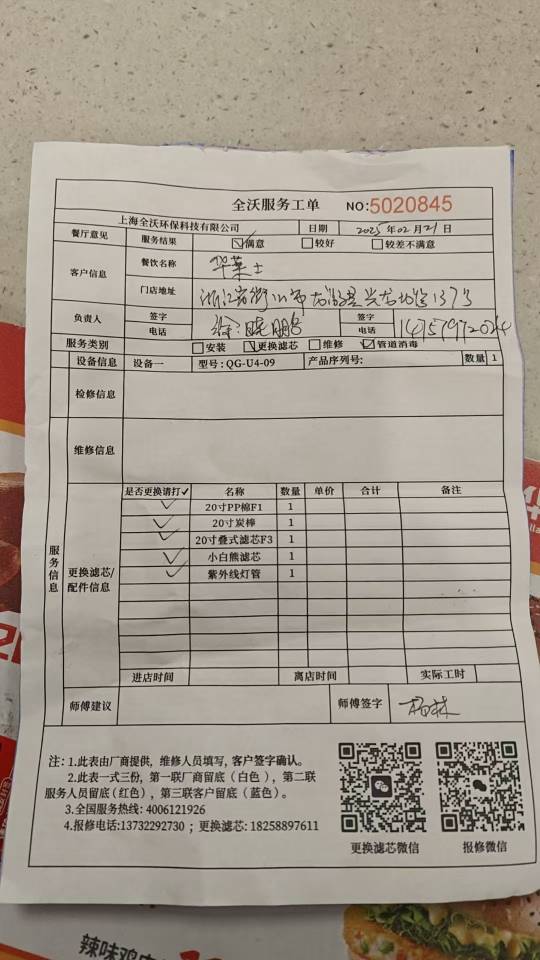 全沃服务工单 NO:5020845
上海全沃环保科技有限公司 日期 2025年02月21日
餐厅意见 服务结果 ☑满意 □较好 □较差不满意
客户信息 餐饮名称 华莱士
门店地址 浙江省衢州市龙游县兴龙北路137号
负责人 签字 徐晓鹏 签字
电话 电话 14757972024
服务类别 □安装 ☑更换滤芯 □维修 ☑管道消毒
设备信息 设备一 型号:QG-U4-09 产品序列号: 数量 1
检修信息
维修信息
服务信息
更换滤芯/配件信息
是否更换请打✓ 名称 数量 单价 合计 备注
✓ 20寸PP棉F1 1
✓ 20寸炭棒 1
✓ 20寸叠式滤芯F3 1
✓ 小白熊滤芯 1
✓ 紫外线灯管 1
进店时间 离店时间 实际工时
师傅建议 师傅签字 杨林
注:1.此表由厂商提供,维修人员填写,客户签字确认。
2.此表一式三份,第一联厂商留底(白色),第二联
服务人员留底(红色),第三联客户留底(蓝色)。
3.全国服务热线:4006121926
4.报修电话:13732292730;更换滤芯:18258897611
更换滤芯微信 报修微信